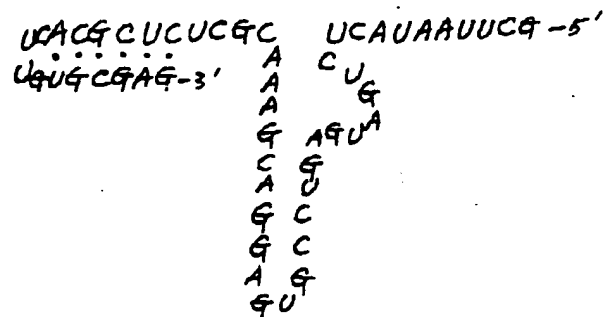 UCACGCUCUCGC UCAUAAUUCG-5'
UGUGCGAG-3' A C
A U
A G
G A G U A
C G
A U
G C
G C
A G
G U